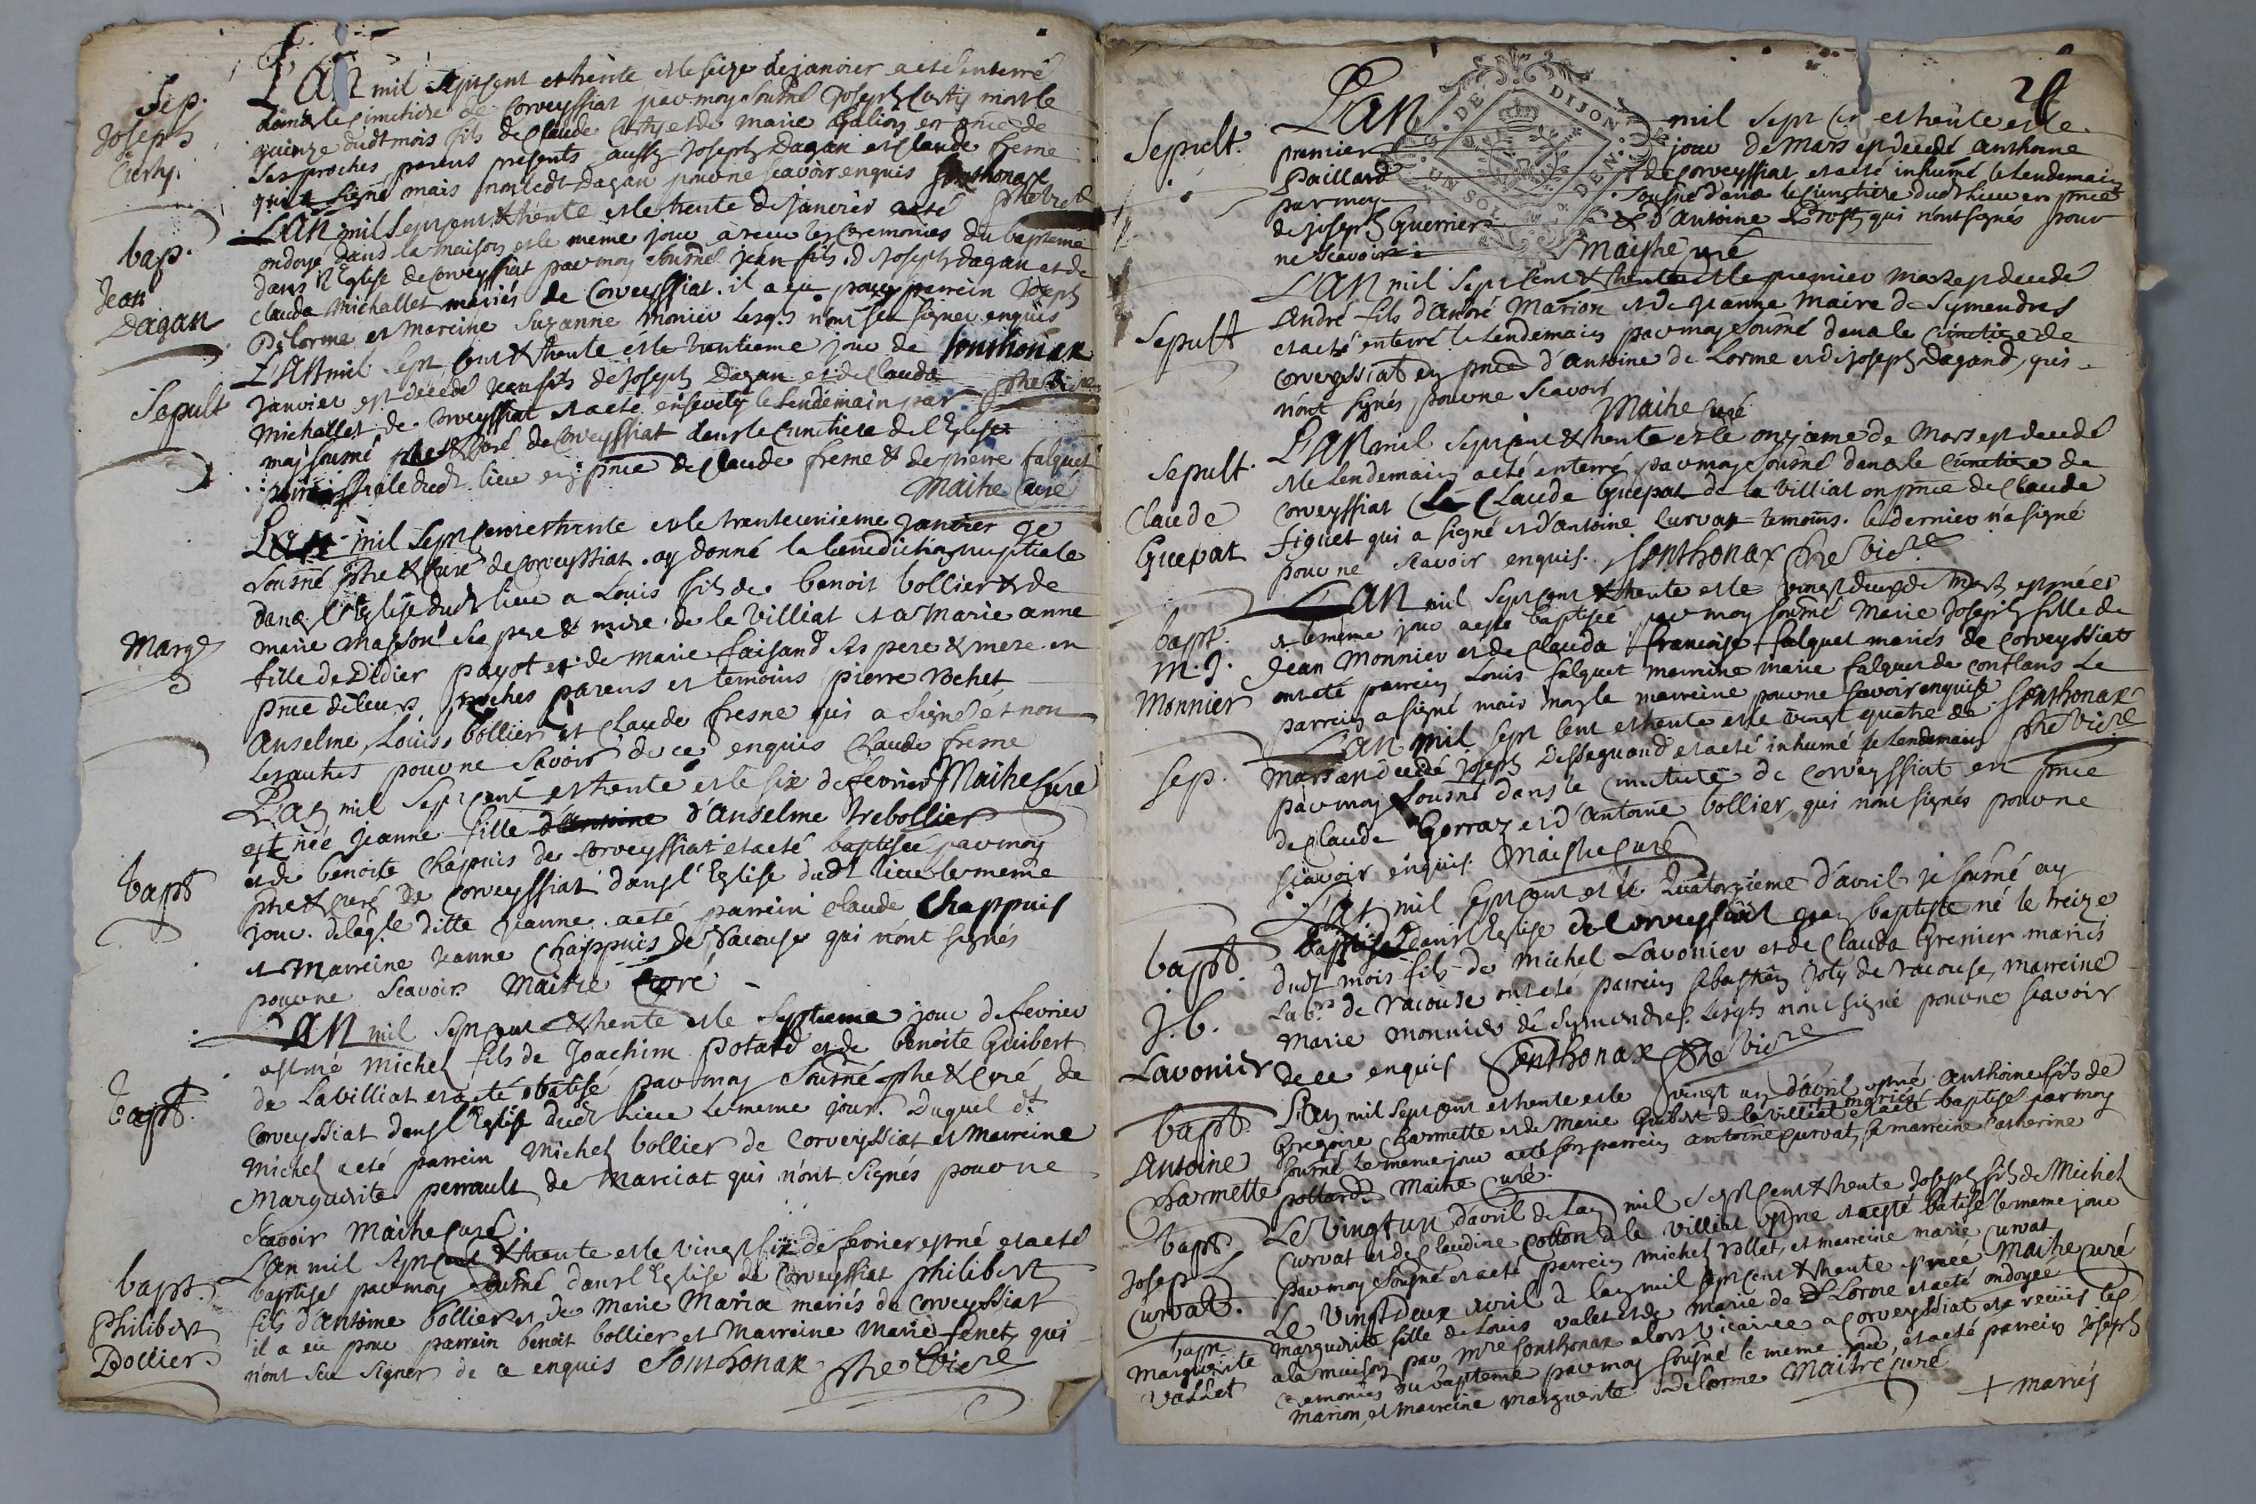 Sep.
Joseph
Curty.
L'an mil sept cent et trente et le seize de janvier a eté enterré
dans le cimitiere de Corveyssiat par moy sousné Joseph Curty mort le
quinze dudt mois fils de Claude Curty et de Marie en pnce de
ses proches parens presents aussy Joseph Dagan et Claude frene
qui a signé mais non ledt Dagan pour ne scavoir enquis Sonthonax
ptre vic
bap.
Jean
Dagan
L'an mil sept cent & trente et le trente de janvier a eté
ondoye dans la maison et le meme jour a receu les ceremonies du bapteme
dans l'Eglise de Corveyssiat par moy sousné jean fils d Joseph Dagan et de
Clauda Michallet mariés de Corveyssiat. il a eu pour parrein Joseph
Delorme et mareine Suzanne monier lesqls n'ont seu signer enquis
Sonthonax
ptre vicre
Sepult
L'an mil sept cent & trente et le trentieme jour de
Janvier est decedé jean fils de Joseph Dagan et de Clauda
Michallet de Corveyssiat et a eté enseveli le lendemain par
moy sousné ptre & curé de Corveyssiat dans le cimitiere de l'Eglise
dudt lieu en pnce de Claude frene & de pierre falquet
Maitre Curé
Marge
L'an mil sept cent et trente et le trente unieme Janvier je
sousné ptre & Curé de Corveyssiat ay donné la benediction nuptiale
dans l'Eglise dudt lieu a Louis fils de benoit bollier & de
marie Masson ses pere & mere de la Villiat et a Marie anne
fille de Didier payot et de Marie faisand ses pere & mere en
pnce de leurs proches parens et temoins pierre rochet
Anselme, Louis bollier et Claude fresne qui a signé et non
les autres pour ne scavoir de ce enquis Claude frene
Maitre Curé
bapt
L'an mil sept cent et trente et le six de fevrier
est née jeanne fille d'Antoine d'Anselme trebollier
et de benoite Chappuis de Corveyssiat et a eté baptisée par moy
ptre & curé de Corveyssiat dans l'Eglise dudt lieu le meme
jour. de laqle ditte jeanne a eté parrein claude Chappuis
et Marreine jeanne Chappuis de Racouse qui n'ont signés
pour ne scavoir. Maitre Curé
bapt.
L'an mil sept cent & trente et le septieme jour de fevrier
est né Michel fils de Joachim potard et de benoite Guibert
de Lavilliat et a eté batisé par moy sousné ptre & Curé de
Corveyssiat dans l'Eglise dudt lieu le meme jour. Duquel dt
Michel a eté parrein Michel bollier de Corveyssiat et Marreine
Marguerite perrault de Marciat qui n'ont signés pour ne
scavoir Maitre Curé.
bapt.
Philibert
Bollier.
L'an mil sept cent & trente et le vingt six de fevrier est né et a eté
baptisé par moy sousné dans l'Eglise de Corveyssiat philibert
fils d'Antoine bollier et de Marie Maria mariés de Corveyssiat
il a eu pour parrein benoit bollier et Marreine Marie fenet, qui
n'ont seu signer de ce enquis Sonthonax ptre Vicre
29
G. DE DIJON
UN SOL
DEN.
Sepult.
L'an mil sept ct et trente et le
premier jour de Mars est decedé anthoine
Paillard de Corveyssiat et a eté inhumé le lendemain
par moy sousné dans le cimitiere dudt lieu en pnce
de joseph Guerrier & d'Antoine Prost, qui n'ont signés pour
ne scavoir. Maitre curé
Sepult
L'an mil sept cent & trente et le premier mars est decedé
André fils d'André Marion et de jeanne Maire de Symandres
et a eté enterré le lendemain par moy sousné dans le cimitiere de
Corveyssiat en pnce d'antoine de Lorme et de joseph Dagand, qui
n'ont signés, pour ne scavoir
Maitre Curé
Sepult.
Claude
Guepat
L'an mil sept cent & trente et le onzieme de Mars est decedé
et le lendemain a eté enterré par moy sousné dans le cimitiere de
Corveyssiat Claude Guepat de la Villiat en pnce de Claude
figuet qui a signé et d'antoine Curvat temoins. le dernier n'a signé
pour ne scavoir enquis. Sonthonax ptre vicre
bapt.
M. J.
Monnier
L'an mil sept cent & trente et le vingt deux de mars est née et
le meme jour a eté baptisée par moy sousné Marie Joseph fille de
Jean Monnier et de Clauda francoise falquet mariés de Corveyssiat
ont eté parrein Louis falquet marreine marie falquet de conflans Le
parrein a signé mais non la marreine pour ne scavoir enquise Sonthonax
ptre Vicre
Sep.
L'an mil sept cent et trente et le vingt quatre de
Mars an decedé joseph Desseguand et a eté inhumé le lendemain
par moy sousné dans le cimitiere de Corveyssiat en pnce
de Claude Gerraz et d'Antoine bollier, qui n'ont signés pour ne
scavoir enquis. Maitre Curé
bapt.
J. b.
Lavonier
L'an mil sept cent et le quatorzieme d'avril je sousné ay
baptisé dans l'Eglise de Corveyssiat jean baptiste né le treize
dudt mois fils de Michel Lavonier et de Clauda Grenier mariés
labrs de racouse ont eté parrein sebastien joly de racouse, marreine
Marie Monnier de Symendres. lesqls n'ont signé pour ne scavoir
de ce enquis Sonthonax ptre vicre
bapt.
Antoine
Charmette
L'an mil sept cent et trente et le vingt un d'avril est né Anthoine fils de
Gregoire Charmette et de Marie Guibert + mariés de la Villiat et a eté baptisé par moy
sousné le meme jour a eté son parrein antoine Curvat, sa marreine Catherine
pottard. Maitre Curé.
bapt.
Joseph
Curvat.
Le vingt un d'avril de l'an mil sept cent & trente Joseph fils de Michel
Curvat et de Claudine Cotton de la Villiat est né et a eté batisé le meme jour
par moy sousné et a eté parrein Michel rollet, et marreine marie Curvat
Maitre Curé
bapt.
Marguerite
Vallet
Le vingt deux avril de l'an mil sept cent & trente est née
Marguerite fille de Louis valet et de Marie de Lorme et a eté ondoyée
a la maison par mre Sonthonax alors vicaire a Corveyssiat et a receu les
ceremonies du bapteme par moy sousné le meme jour, et a eté parrein joseph
Marion, et marreine marguerite delorme Maitre Curé
+ mariés